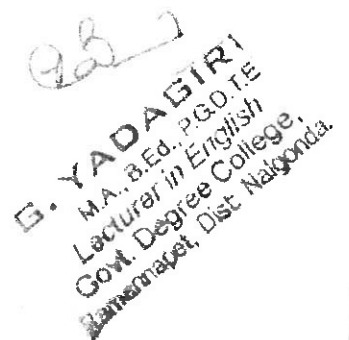 G. YADAGIRI
M.A., B.Ed., P.G.D.T.E
Lecturer in English
Govt. Degree College,
Ramannapet, Dist: Nalgonda.